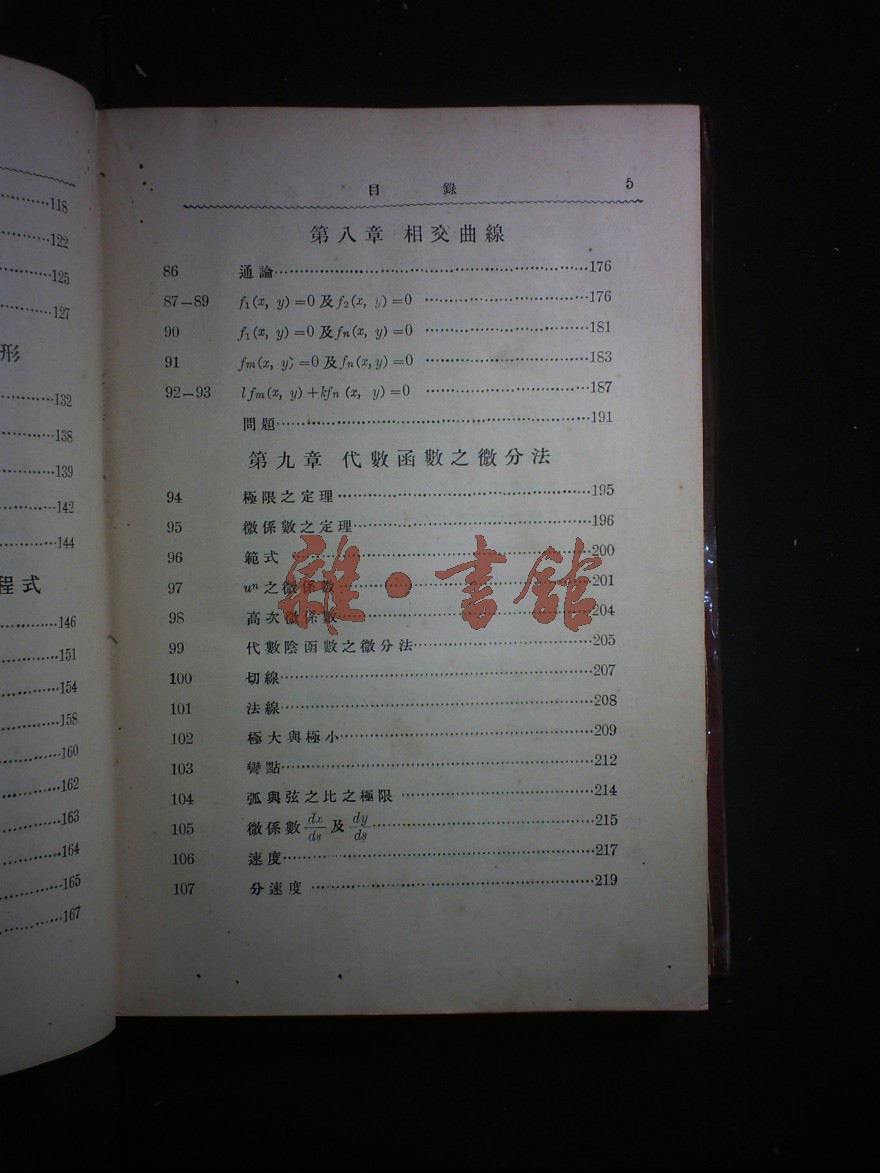 118
122
125
127
形
132
138
139
142
144
程式
146
151
154
158
160
162
163
164
165
167
目 錄 5
第八章 相交曲線
86 通論 176
87—89 f₁(x, y)=0及f₂(x, y)=0 176
90 f₁(x, y)=0及fn(x, y)=0 181
91 fm(x, y)=0及fn(x,y)=0 183
92—93 lfm(x, y)+kfn(x, y)=0 187
問題 191
第九章 代數函數之微分法
94 極限之定理 195
95 微係數之定理 196
96 範式 200
97 uⁿ之微係數 201
98 高次微係數 204
99 代數陰函數之微分法 205
100 切線 207
101 法線 208
102 極大與極小 209
103 彎點 212
104 弧與弦之比之極限 214
105 微係數 dx/ds 及 dy/ds 215
106 速度 217
107 分速度 219
雜·書館